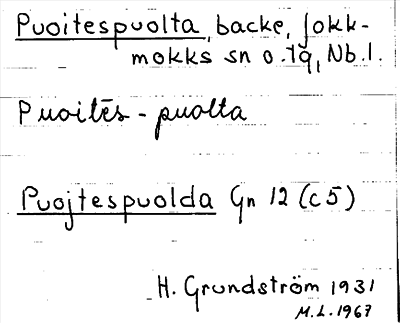 Puoitespuolta, backe, Jokk-
mokks sn o. tg, Nb. l.
Puoitēs-puolta
Puojtespuolda Gn 12 (c5)
H. Grundström 1931
M.L. 1967